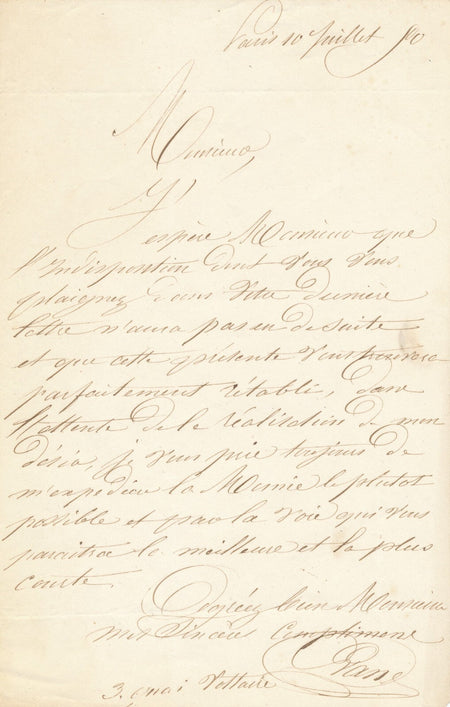 Paris 10 Juillet 80
Monsieur,
J'
espère Monsieur que
l'Indisposition dont Vous Vous
plaignez dans votre dernière
lettre n'aura pas eu de suite
et que cette présente Vous trouvera
parfaitement rétabli, dans
l'attente de la réalisation de mon
désir, je vous prie toujours de
m'expédier la Momie le plutot
possible et par la voie qui Vous
paraitra la meilleure et la plus
courte.
Agréez bien Monsieur
mes Sincères Compliments
3. quai Voltaire